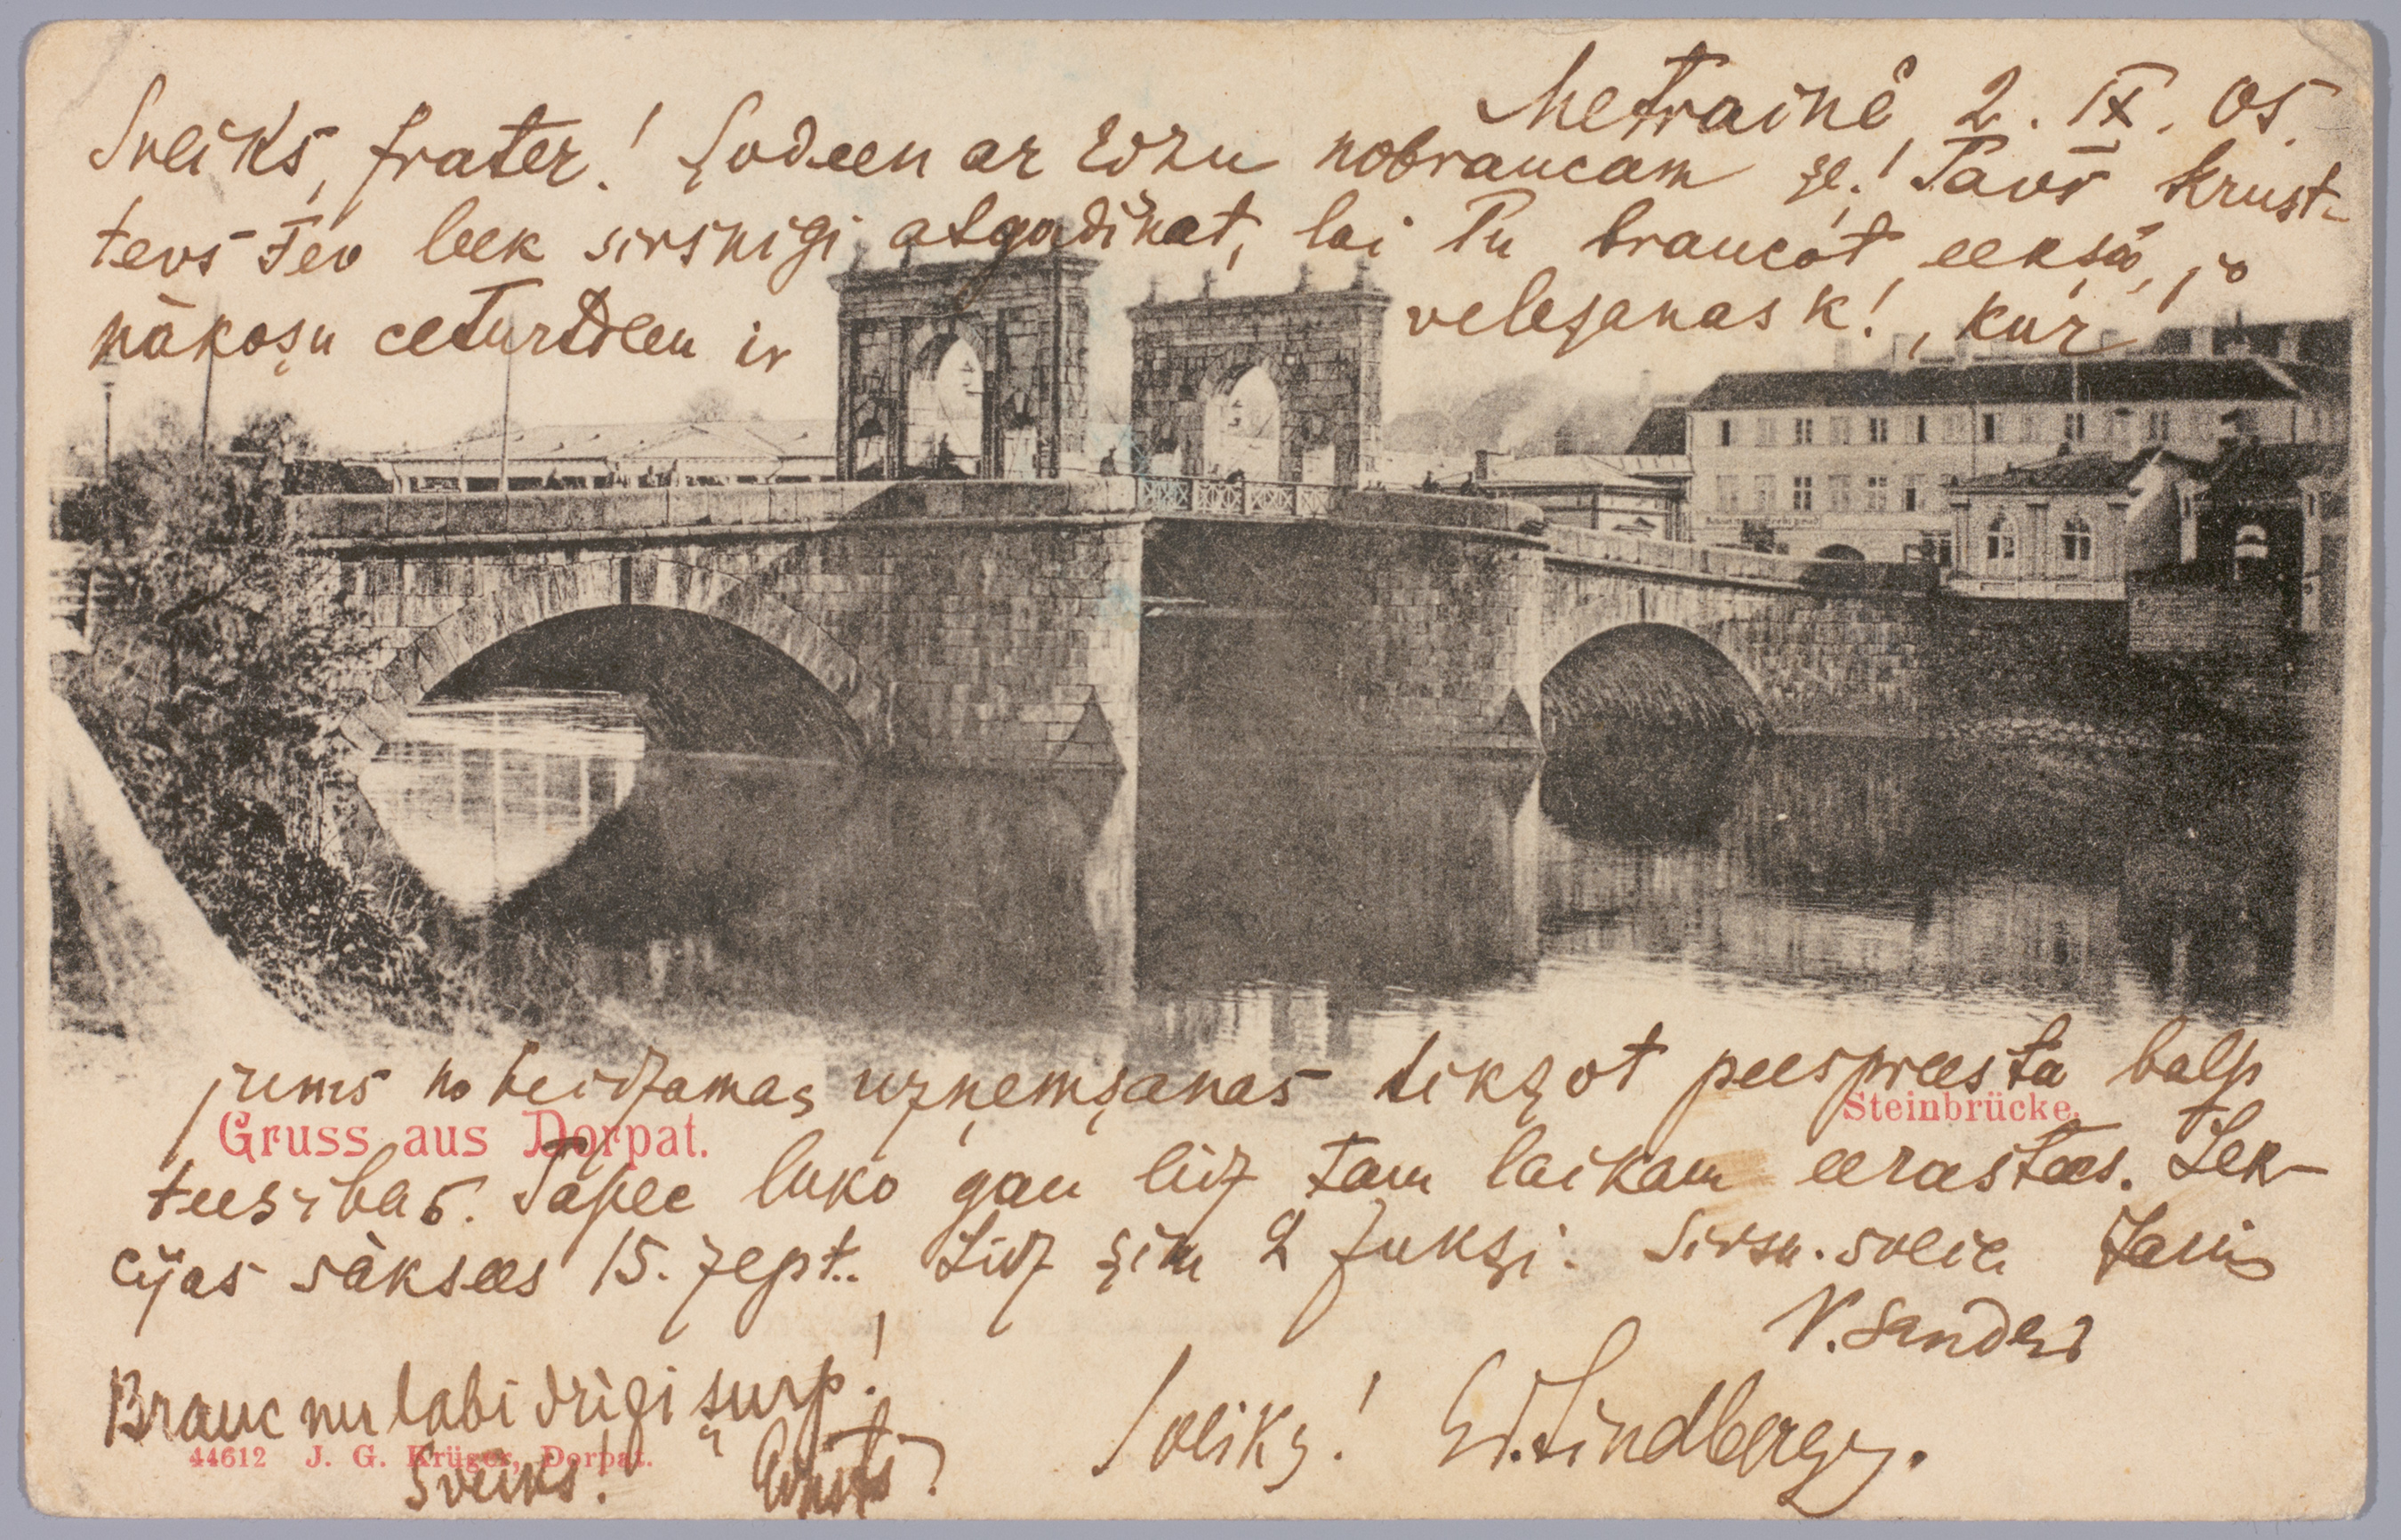 Metrainē, 2. IX. 05.
Sveiks, frater! Șodeen ar Edzu nobraucam șe! Tavs krust-
tevs Tev leek sirsnigi atgadinat, lai Tu braucot eeksā, jo
nākoșu ceturtdeen ir velēșanas k!, kur
jums no beidzamas uzņemșanas tikșot peespreesta balss
Gruss aus Dorpat.
Steinbrücke.
teesibas. Tapec luko gan lidz tam laikam eerastees. Lek-
cijas sāksees 15. sept. Lidz șim 2 fukși. Sirsn. sveic Janis
V. Sanders
Brauc nu labi drīzi șurp!
Sveiks! Ernsts
Sveiks! Ed. Lindbergs.
44612 J. G. Krüger, Dorpat.